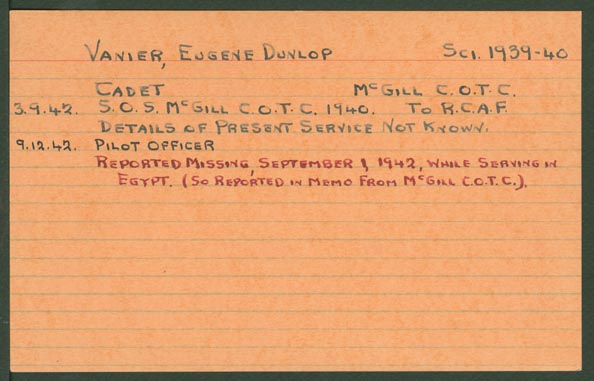 VANIER, EUGENE DUNLOP SCI. 1939-40
CADET McGILL C.O.T.C.
3.9.42. S.O.S. McGILL C.O.T.C. 1940. TO R.C.A.F.
DETAILS OF PRESENT SERVICE NOT KNOWN.
9.12.42. PILOT OFFICER
REPORTED MISSING, SEPTEMBER 1, 1942, WHILE SERVING IN
EGYPT. (SO REPORTED IN MEMO FROM McGILL C.O.T.C.).